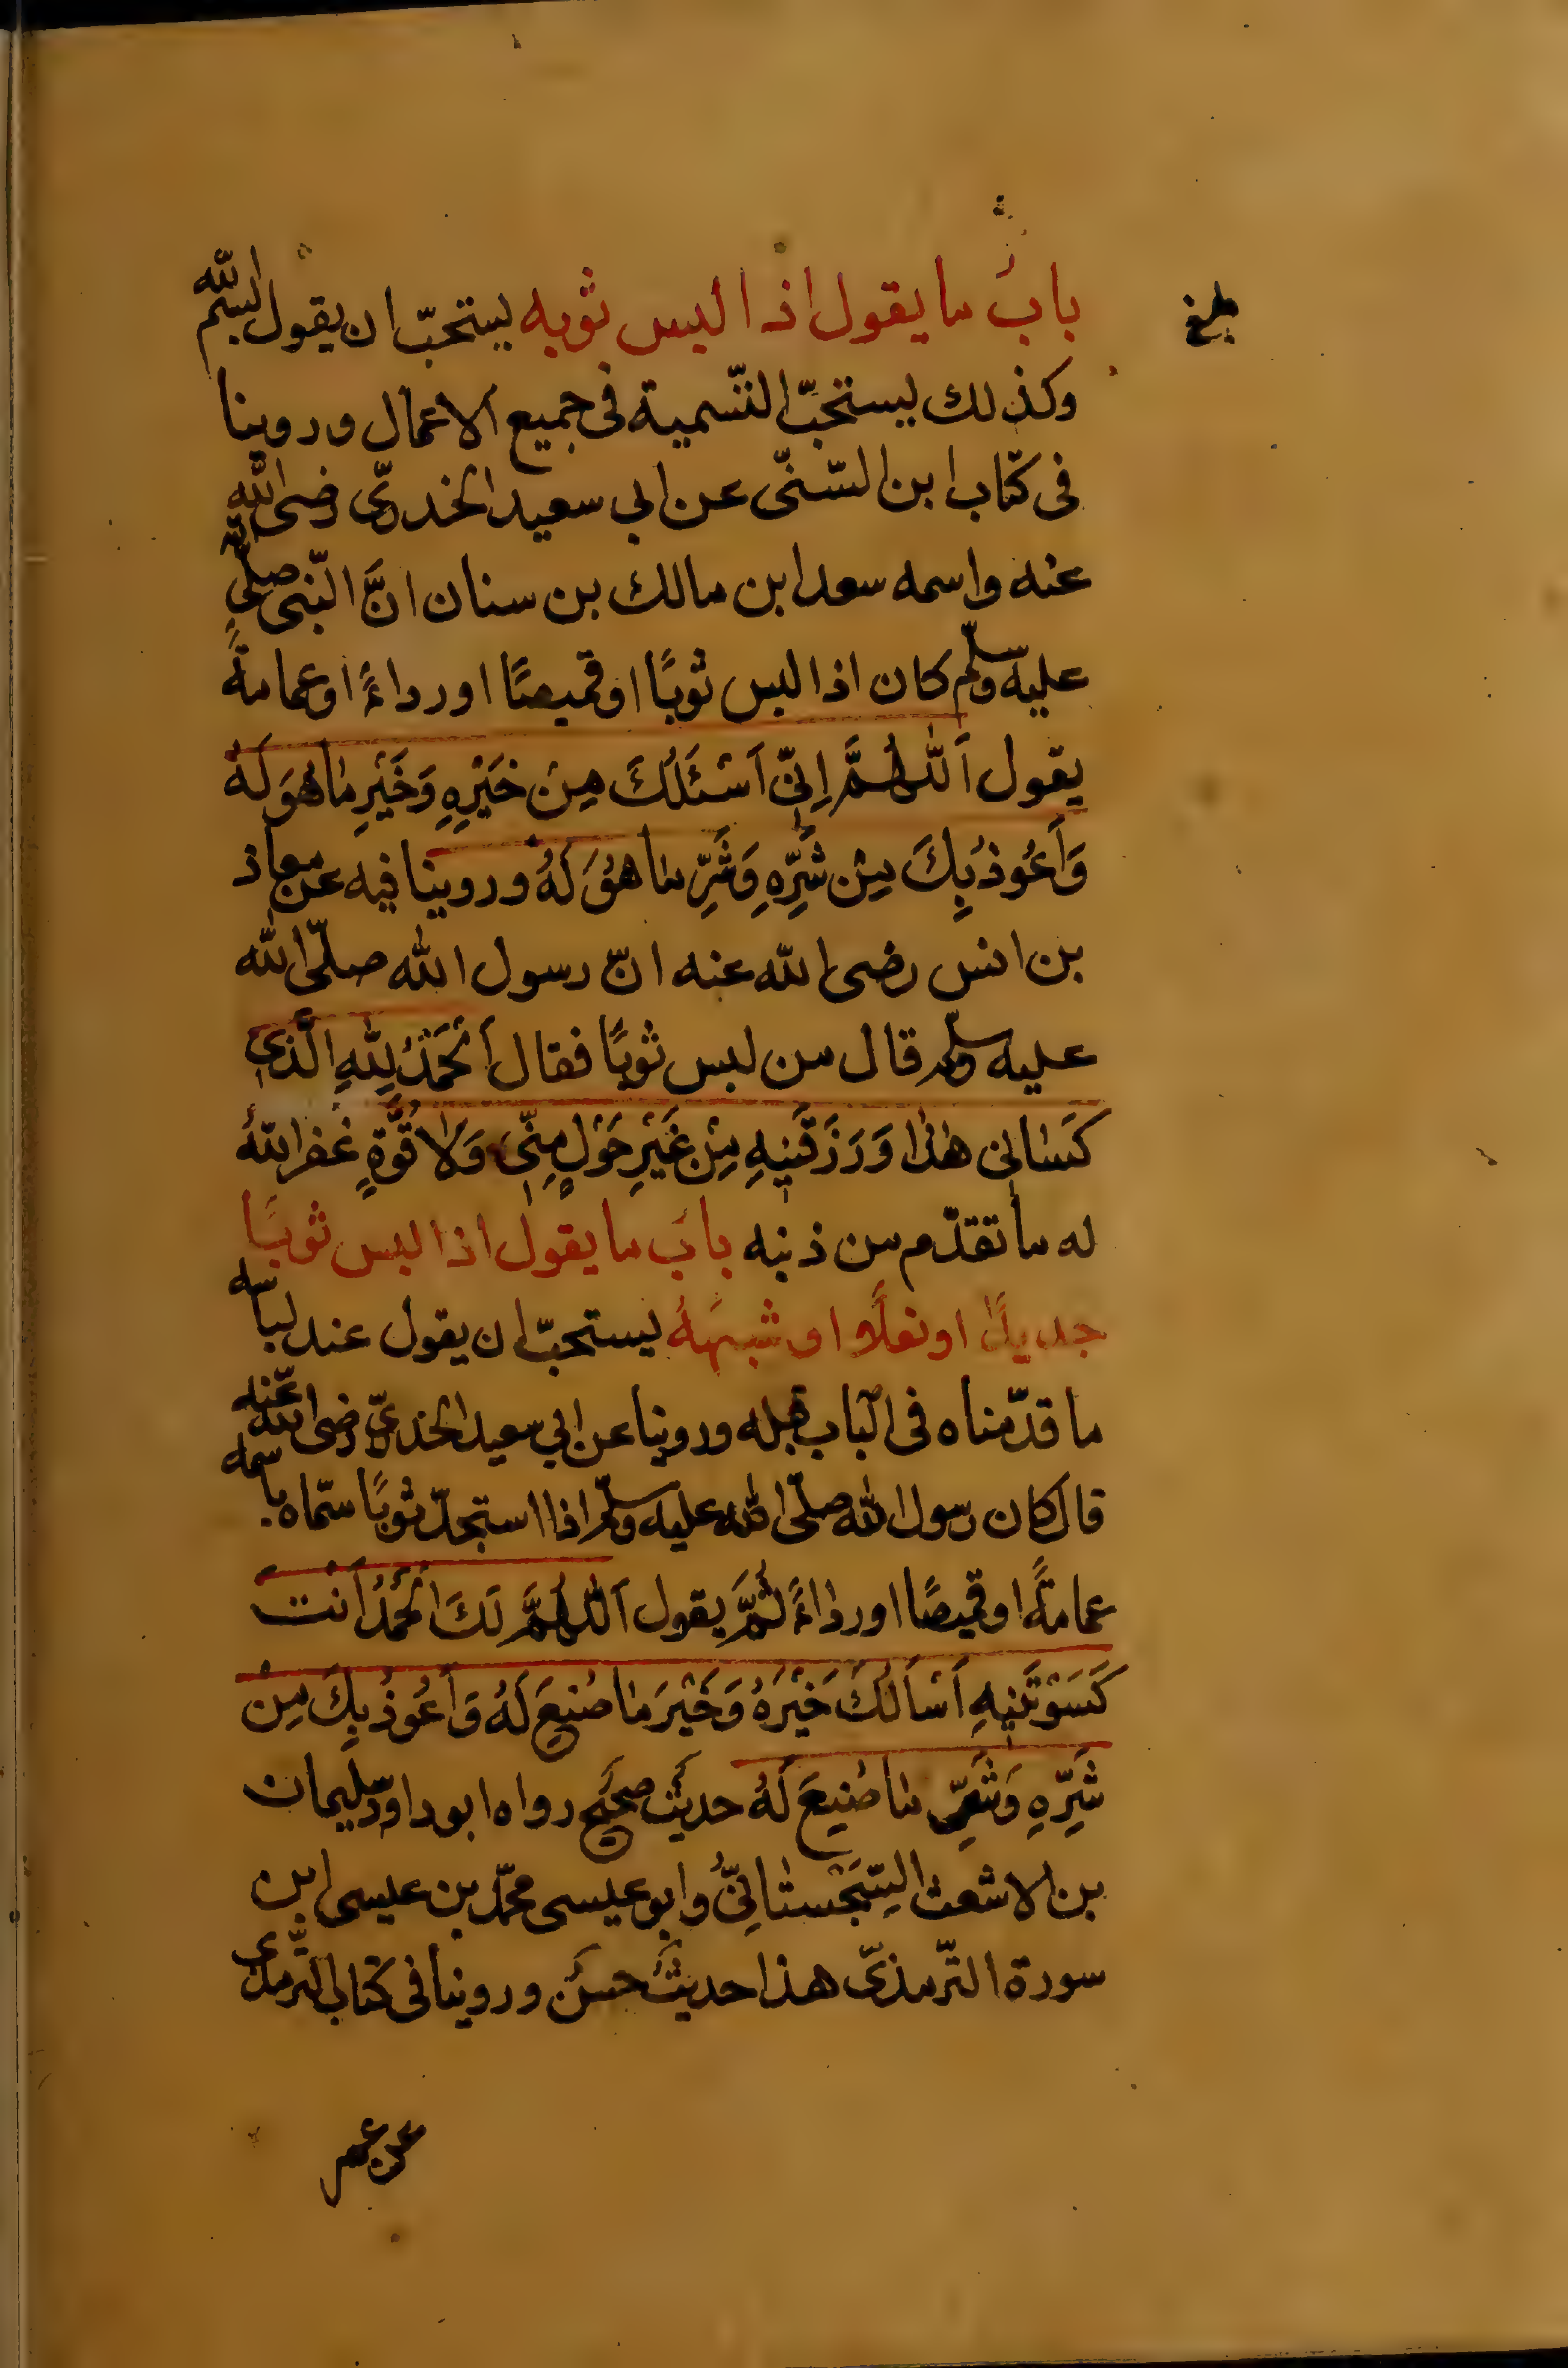 بلغ
بابُ ما يقول اذا لبس ثوبه يستحبّ ان يقول بسم الله
وكذلك يستحبّ التّسمية فى جميع الاعمال وروينا
فى كتاب ابن السّنّى عن ابي سعيد الخدرىّ رضى الله
عنه واسمه سعد ابن مالك بن سنان انَّ النّبى صلّى الله
عليه وسلّم كان اذا لبس ثوبًا او قميصًا او رداءً او عمامةً
يقول اَللّٰهُمَّ اِنِّىۤ اَسْئَلُكَ مِنْ خَيْرِهِ وَخَيْرِ مٰا هُوَ لَهُ
وَاَعُوذُ بِكَ مِنْ شَرِّهِ وَشَرِّ مٰا هُوَ لَهُ وروينا فيه عن معاذ
بن انس رضى الله عنه انّ رسول الله صلّى الله
عليه وسلم قال من لبس ثوبًا فقال اَلْحَمْدُ لِلّٰهِ الَّذي
كَسٰانِى هٰذٰا وَرَزَقَنِيهِ مِنْ غَيْرِ حَوْلٍ مِنِّى وَلٰا قُوَّةٍ غفر اللهُ
له ما تقدّم من ذنبه بابُ ما يقول اذا لبس ثوبًا
جديدًا او نعلًا او شبهَهُ يستحبّ ان يقول عند لباسه
ما قدّمناه فى الباب قبله وروينا عن ابي سعيد الخدرىّ رضى الله عنه
قال كان رسول الله صلّى الله عليه وسلّم اذا استجدّ ثوبًا سمّاه باسمه
عمامةً او قميصًا او رداءً ثُمَّ يقول اَللّٰهُمَّ لَكَ الْحَمْدُ اَنْتَ
كَسَوْتَنِيهِ اَسْاَلُكَ خَيْرَهُ وَخَيْرَ مٰا صُنِعَ لَهُ وَاَعُوذُ بِكَ مِنْ
شَرِّهِ وَشَرِّ مٰا صُنِعَ لَهُ حديثٌ صحيحٌ رواه ابو داود سليمان
بن الاشعث السِّجَسْتٰانِىُّ وابو عيسى محمّد بن عيسى ابن
سورة التّرمذىّ هذا حديثٌ حسنٌ وروينا فى كتاب التّرمذى
عن عمر